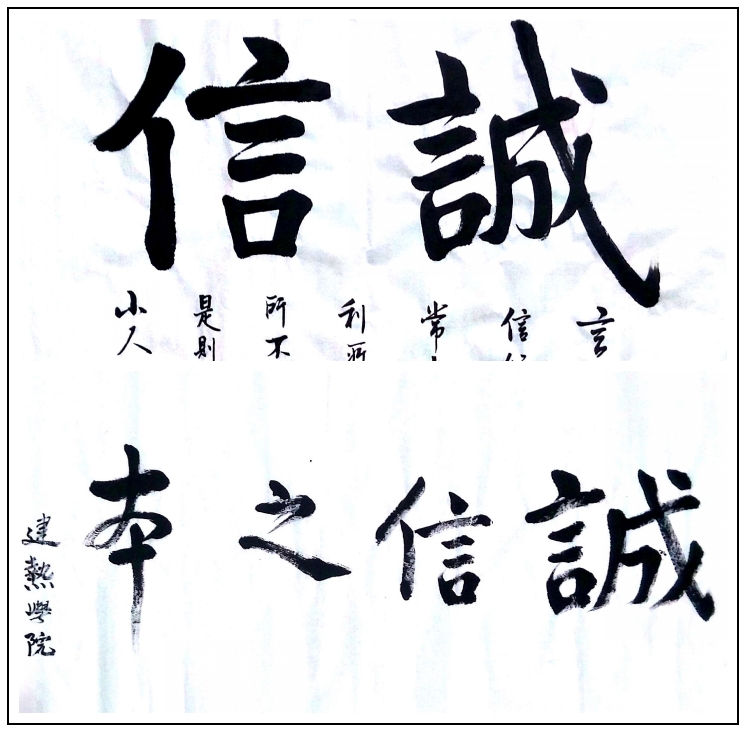 誠信
言
信
常
利所
所不
是則
小人
誠信之本
建熱學院